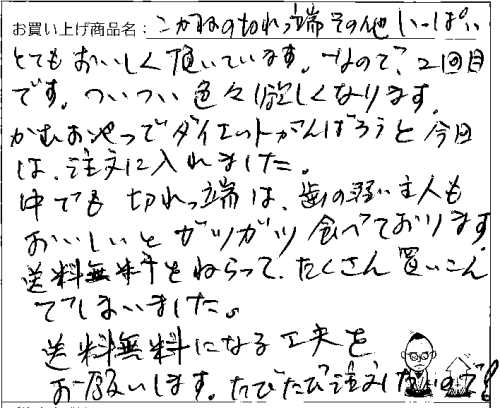 お買い上げ商品名：こがねの切れっ端その他いっぱい
とてもおいしく頂いています。なので、2回目
です。ついつい色々欲しくなります。
かむおやつでダイエットがんばろうと今回
は、注文に入れました。
中でも切れっ端は、歯の弱い主人も
おいしいとガツガツ食べております。
送料無料をねらって、たくさん買いこん
でしまいました。
送料無料になる工夫を
お願いします。たびたび注文したいので！